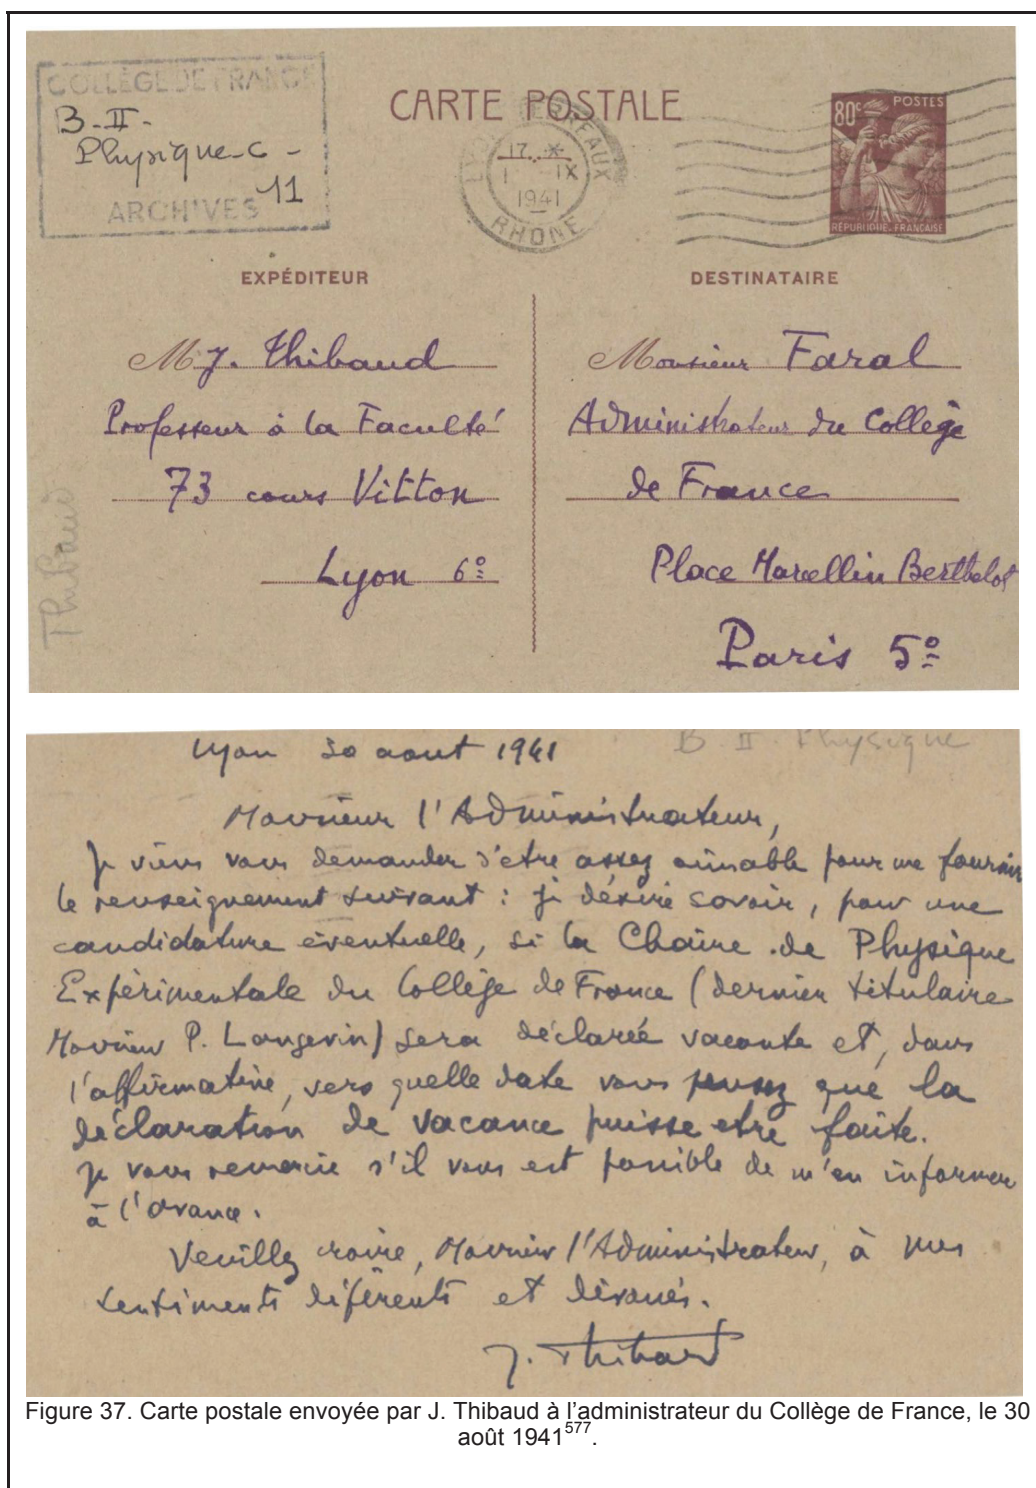 COLLÈGE DE FRANCE
B-II-
Physique-C-
11
ARCHIVES
CARTE POSTALE
LYON TERREAUX
17 *
1 IX
1941
RHONE
80c
POSTES
RÉPUBLIQUE FRANÇAISE
EXPÉDITEUR
M J. Thibaud
Professeur à la Faculté
73 cours Vitton
Lyon 6e
Thibaud
DESTINATAIRE
Monsieur Faral
Administrateur du Collège
de France
Place Marcellin Berthelot
Paris 5e
Lyon 30 aout 1941
B II Physique
Monsieur l'Administrateur,
Je viens vous demander d'etre assez aimable pour me fournir
le renseignement suivant : je désire savoir, pour une
candidature éventuelle, si la Chaire de Physique
Expérimentale du Collège de France (dernier titulaire
Monsieur P. Langevin) sera déclarée vacante et, dans
l'affirmative, vers quelle date vous pensez que la
déclaration de vacance puisse etre faite.
Je vous remercie s'il vous est possible de m'en informer
à l'avance.
Veuillez croire, Monsieur l'Administrateur, à mes
sentiments déférents et dévoués.
J. Thibaud
Figure 37. Carte postale envoyée par J. Thibaud à l'administrateur du Collège de France, le 30
août 1941577.